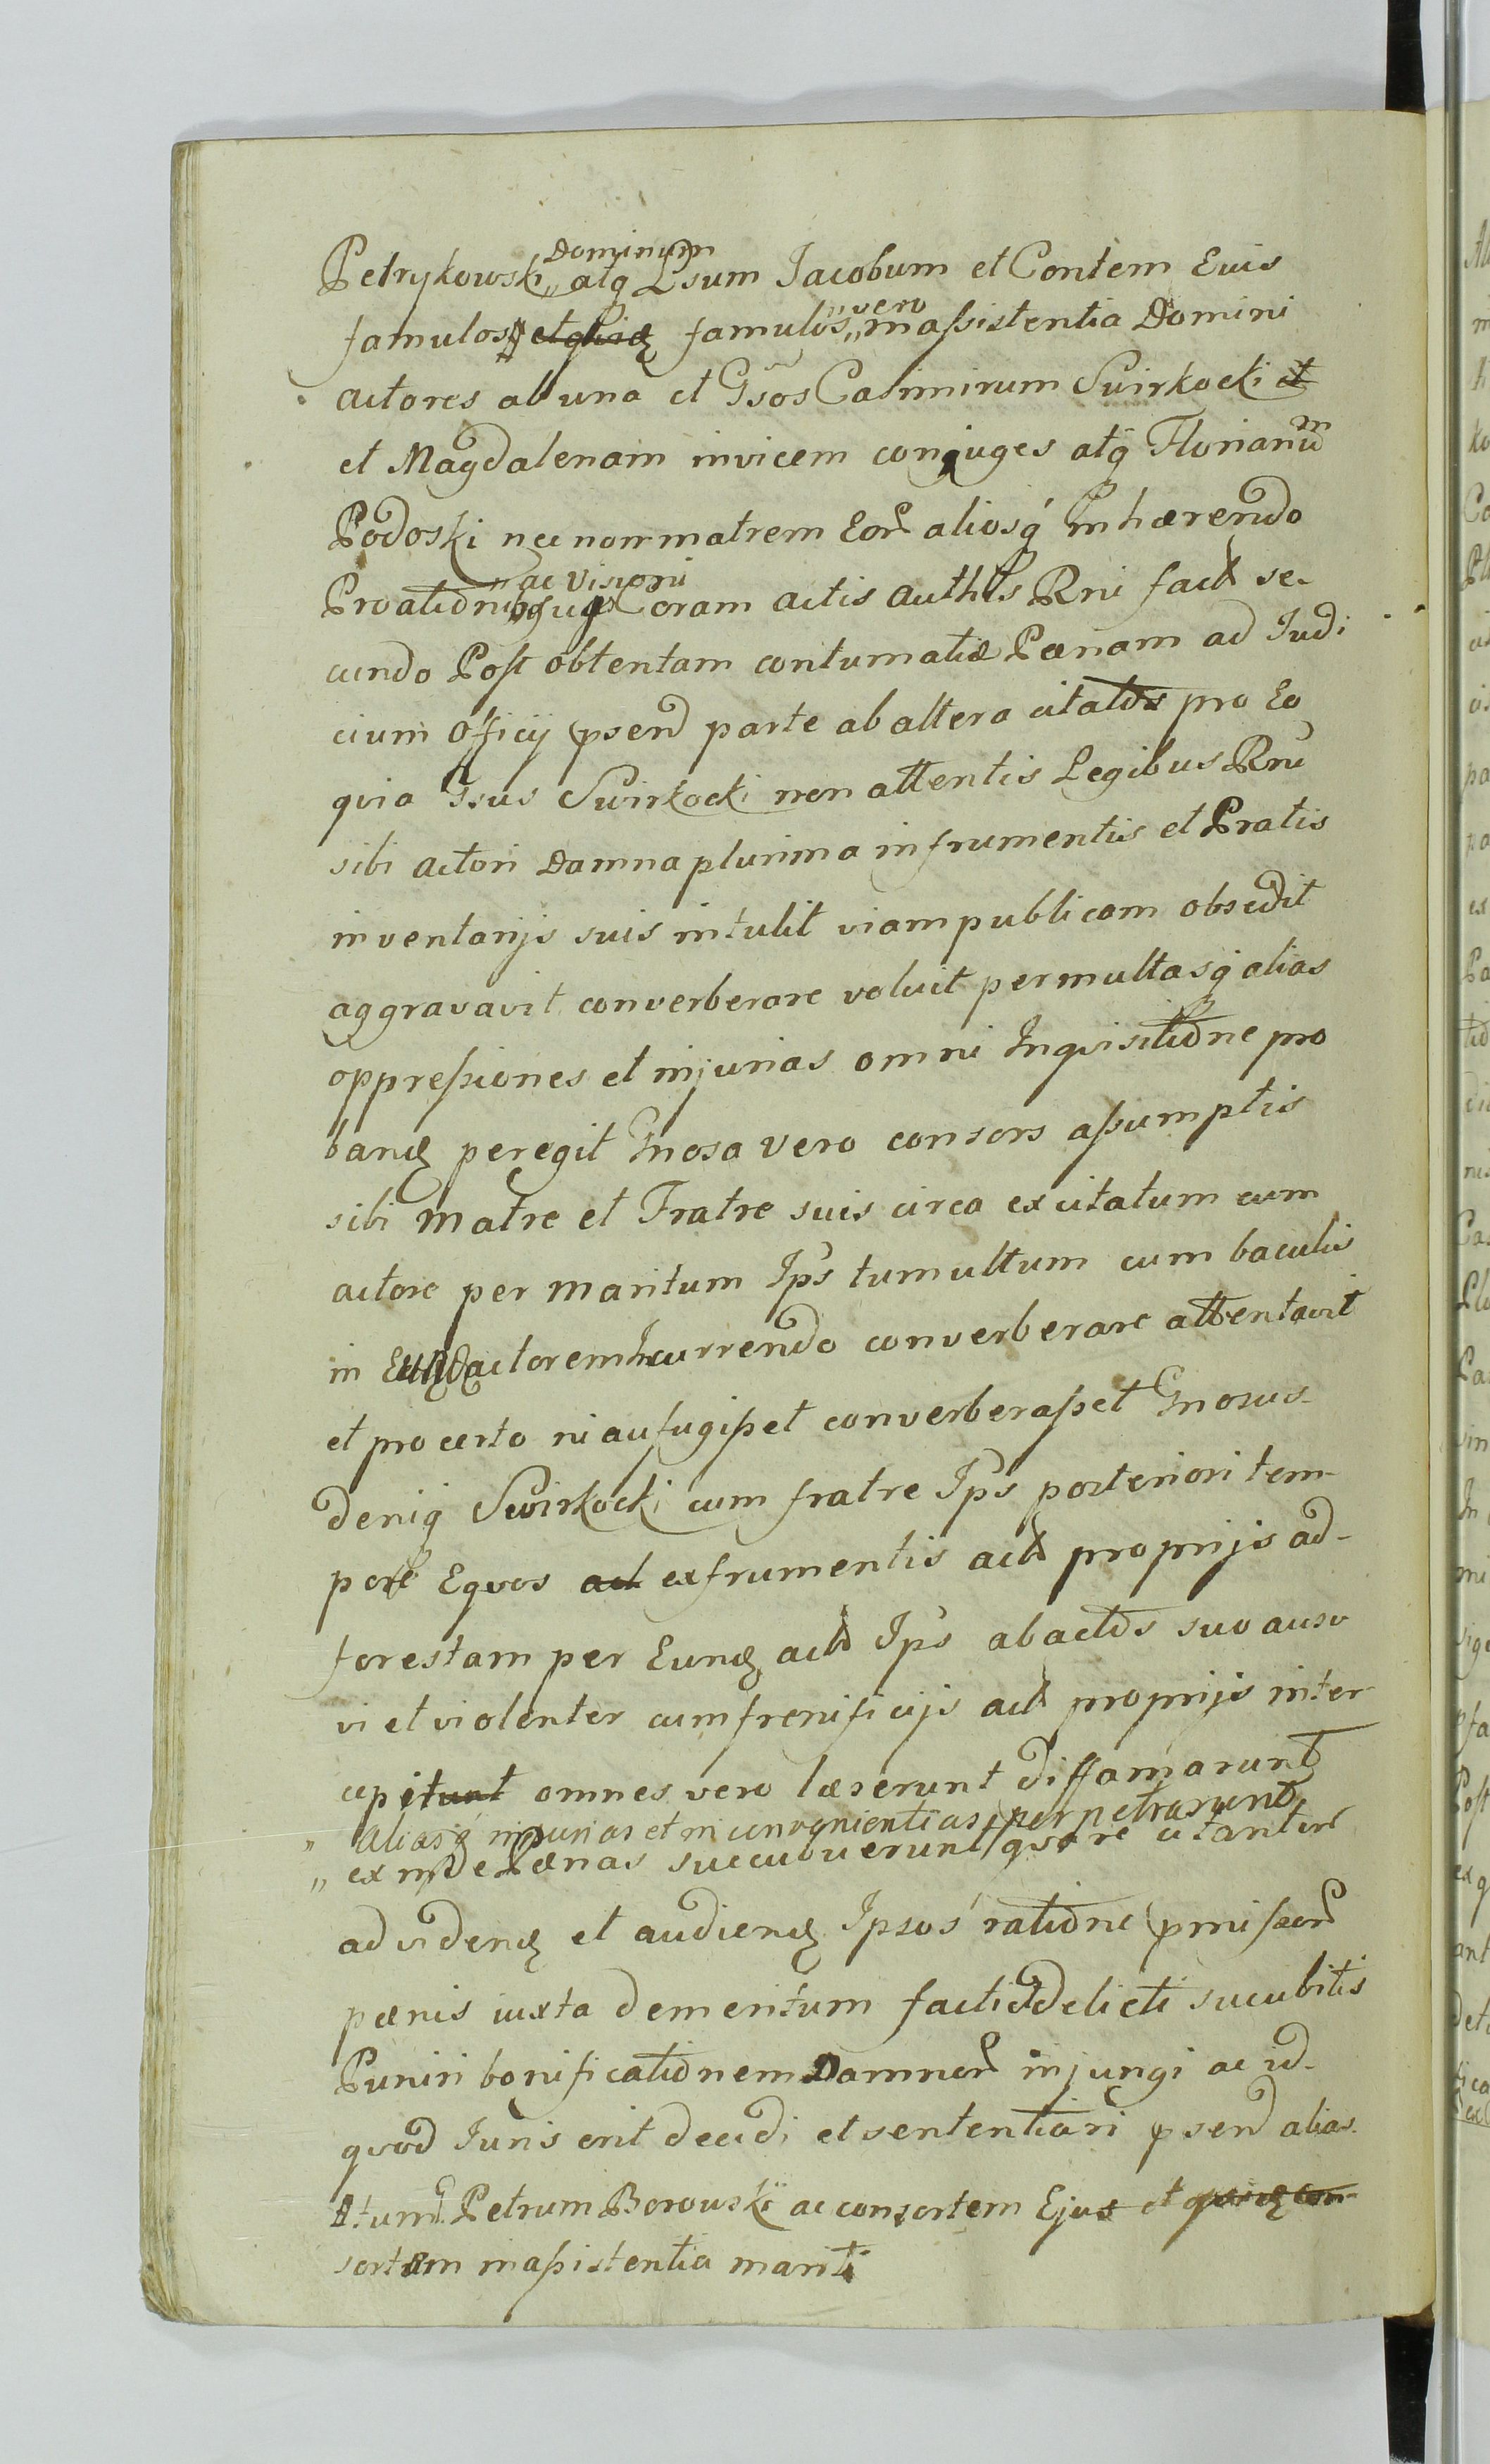 Dominum
Petrykowski atq Lsum Jacobum et Contem Euis
vero
famulos famulos in assistentia Domini
actores ab una et Gsos Casimirum Swirkocki et
et Magdalenam invicem conjuges atq Florianum
Podoski nec non matrem Eor aliosq Inhærendo
ac Visioni
coram actis auth Rni fact se-
cundo Post obtentam contumatiæ Pænam ad Judi
cium Officij psen parte ab altera citatos pro Eo
quia Gsus Swirkocki non attentis Legibus Rni
sibi actori Damna plurima in frumentis et Pratis
inventarijs suis intulit viam publicam obsedit
aggravavit converberare voluit permultasq alias
oppressiones et injurias omni Inquisitione pro
band peregit Gnosa vero consors assumptis
sibi Matre et Fratre suis circa excitatum cum
actore per Maritum Ips tumultum cum baculis
in actorem Incurrendo converberare attentavit
et pro certo ni aufugisset converberasset Gnosus
deniq Swirkocki cum fratre Ips posteriori tem-
pore Equos ad ex frumentis act proprijs ad-
forestam per Eund act Ips abactos suo ausu
vi et violenter cum frenificijs act proprijs inter
cepit omnes vero læserunt diffamarunt
„ aliasq injurias et inconvenientias perpetrarunt
„ ex inde Pænas succubuerunt quare citantur
ad vidend et audiend Ipsos ratione pmissor
pænis iuxta demeritum facti delicti sucubitis
Puniri bonificationem Damnor injungi ac id-
quod Juris erit decidi et sententiari psen alias
Petrum Borowski ac consortem Ejus et
sortem in assistentia mariti